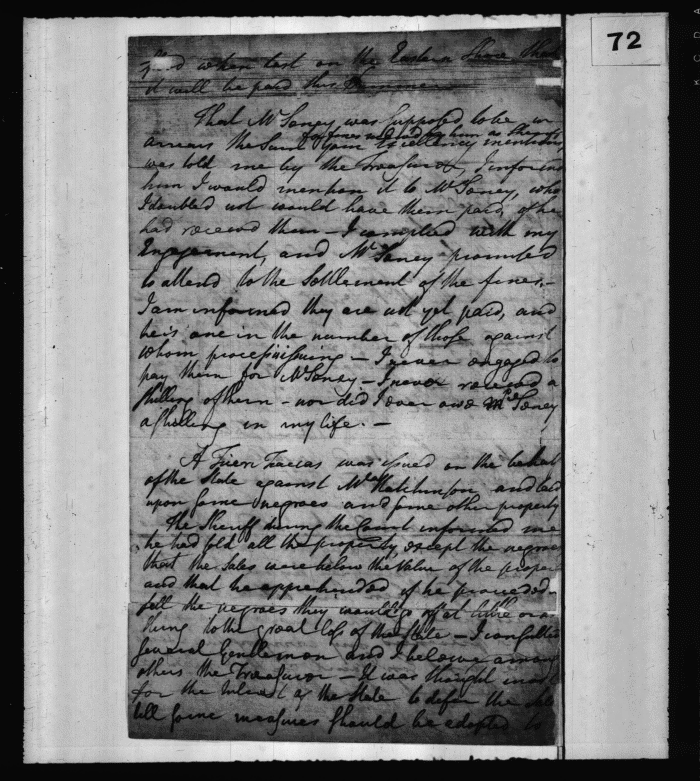 72
when last on the Eastern Shore that
it will be paid this Summer
That Mr Toney was supposed to be in
for fines received by him as Sheriff
arrears the Sum your Excellency mentions,
was told me by the Treasurer, I informed
him I would mention it to Mr Toney, who
I doubted not would have them paid, if he
had received them – I complied with my
Engagement, and Mr Toney promised
to attend to the Settlement of the fines. –
I am informed they are not yet paid, and
he is one in the number of those against
whom process is issuing – I never engaged to
pay them for Mr Toney – I never received a
shilling of them – nor did I ever owe Mr Toney
a shilling in my life. –
A Fieri Facias was issued on the behalf
of the State against Mr Hutchinson and laid
upon some negroes and some other property
The Sheriff during the Court informed me
he had sold all the property, except the negroes
that the sales were below the value of the proper
and that he apprehended if he proceeded
sell the negroes they would go off at little or a
thing to the great loss of the State – I consulted
several Gentlemen and I believe among
others the Treasurer – It was thought most
for the Interest of the State to defer the sale
till some measures should be adopted to